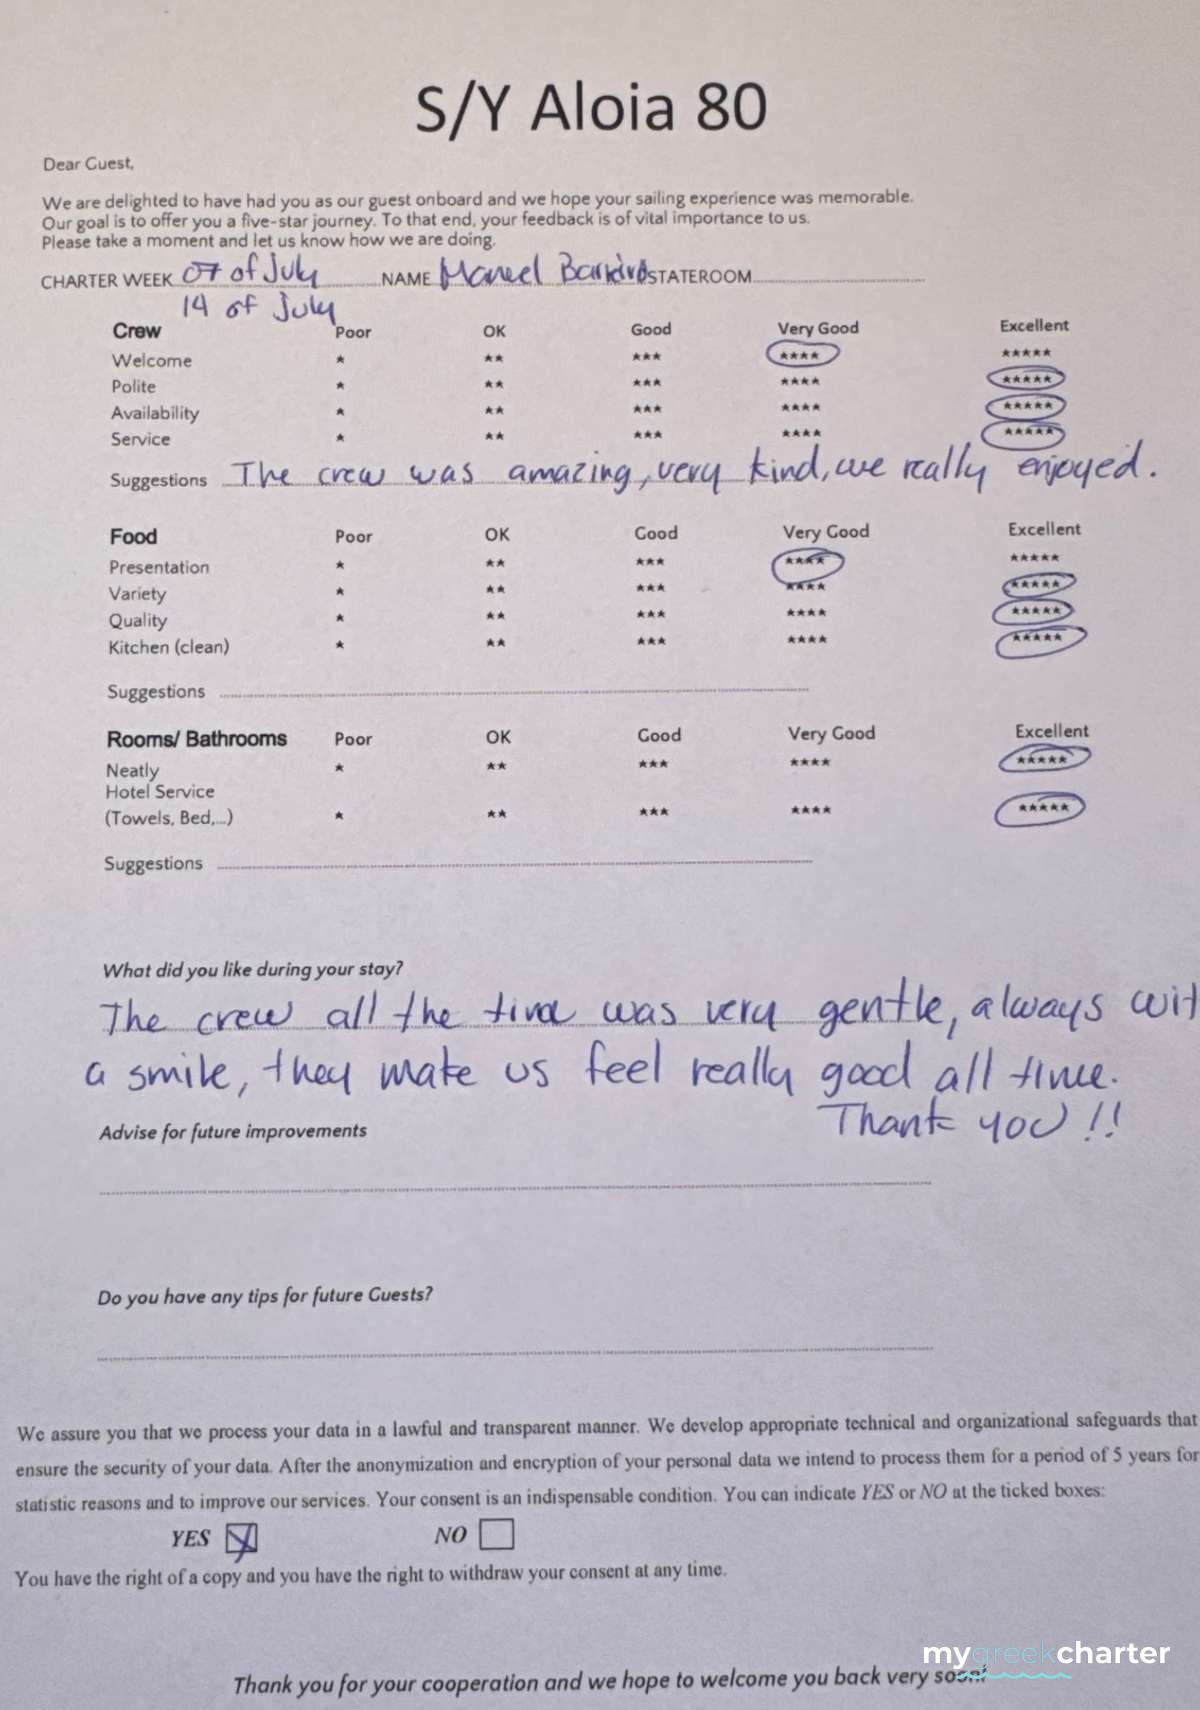 S/Y Aloia 80
Dear Guest,
We are delighted to have had you as our guest onboard and we hope your sailing experience was memorable.
Our goal is to offer you a five-star journey. To that end, your feedback is of vital importance to us.
Please take a moment and let us know how we are doing.
CHARTER WEEK 07 of July NAME STATEROOM
14 of July
Crew Poor OK Good Very Good Excellent
Welcome * ** *** **** *****
Polite * ** *** **** *****
Availability * ** *** **** *****
Service * ** *** **** *****
Suggestions The crew was amazing, very kind, we really enjoyed.
Food Poor OK Good Very Good Excellent
Presentation * ** *** **** *****
Variety * ** *** **** *****
Quality * ** *** **** *****
Kitchen (clean) * ** *** **** *****
Suggestions
Rooms/ Bathrooms Poor OK Good Very Good Excellent
Neatly * ** *** **** *****
Hotel Service
(Towels, Bed,...) * ** *** **** *****
Suggestions
What did you like during your stay?
The crew all the time was very gentle, always wit
a smile, they make us feel really good all time.
Thank you!!
Advise for future improvements
Do you have any tips for future Guests?
We assure you that we process your data in a lawful and transparent manner. We develop appropriate technical and organizational safeguards that
ensure the security of your data. After the anonymization and encryption of your personal data we intend to process them for a period of 5 years for
statistic reasons and to improve our services. Your consent is an indispensable condition. You can indicate YES or NO at the ticked boxes:
YES NO
You have the right of a copy and you have the right to withdraw your consent at any time.
mygreekcharter
Thank you for your cooperation and we hope to welcome you back very soon!